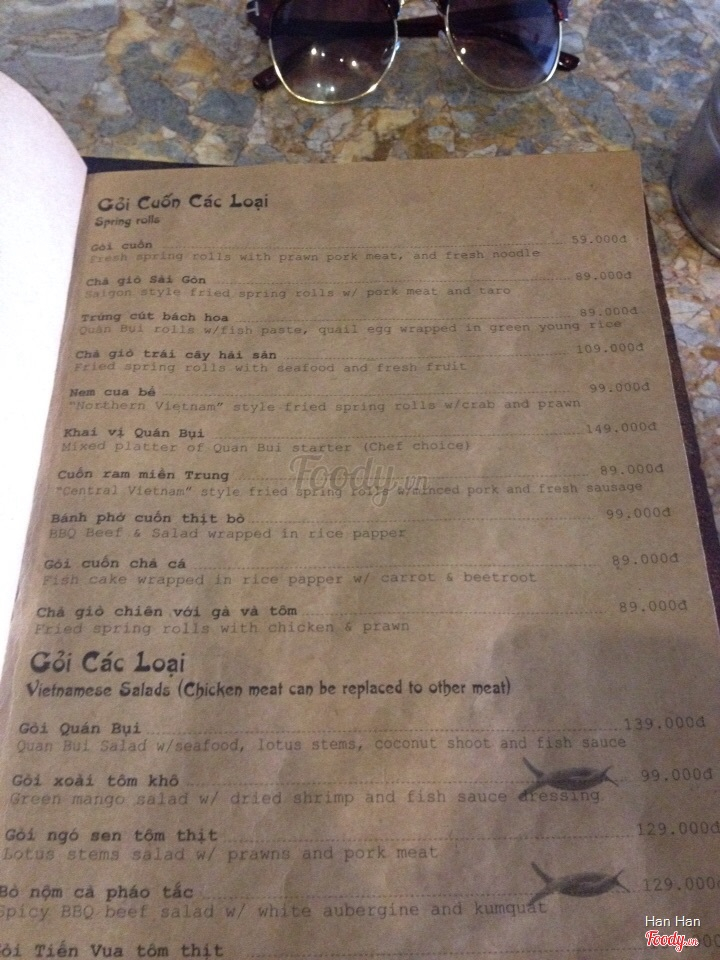 Gỏi Cuốn Các Loại
Spring rolls
Gỏi cuốn 59.000đ
Fresh spring rolls with prawn pork meat, and fresh noodle
Chả giò Sài Gòn 89.000đ
Saigon style fried spring rolls w/ pork meat and taro
Trứng cút bách hoa 89.000đ
Quán Bụi rolls w/fish paste, quail egg wrapped in green young rice
Chả giò trái cây hải sản 109.000đ
Fried spring rolls with seafood and fresh fruit
Nem cua bể 99.000đ
"Northern Vietnam" style fried spring rolls w/crab and prawn
Khai vị Quán Bụi 149.000đ
Mixed platter of Quan Bui starter (Chef choice)
Cuốn ram miền Trung 89.000đ
"Central Vietnam" style fried spring rolls w/minced pork and fresh sausage
Foody.vn
Bánh phở cuốn thịt bò 99.000đ
BBQ Beef & Salad wrapped in rice papper
Gỏi cuốn chả cá 89.000đ
Fish cake wrapped in rice papper w/ carrot & beetroot
Chả giò chiên với gà và tôm 89.000đ
Fried spring rolls with chicken & prawn
Gỏi Các Loại
Vietnamese Salads (Chicken meat can be replaced to other meat)
Gỏi Quán Bụi 139.000đ
Quan Bui Salad w/seafood, lotus stems, coconut shoot and fish sauce
Gỏi xoài tôm khô 99.000đ
Green mango salad w/ dried shrimp and fish sauce dressing
Gỏi ngó sen tôm thịt 129.000đ
Lotus stems salad w/ prawns and pork meat
Bò nộm cà pháo tắc 129.000đ
Spicy BBQ beef salad w/ white aubergine and kumquat
Gỏi Tiến Vua tôm thịt
Han Han
Foody.vn